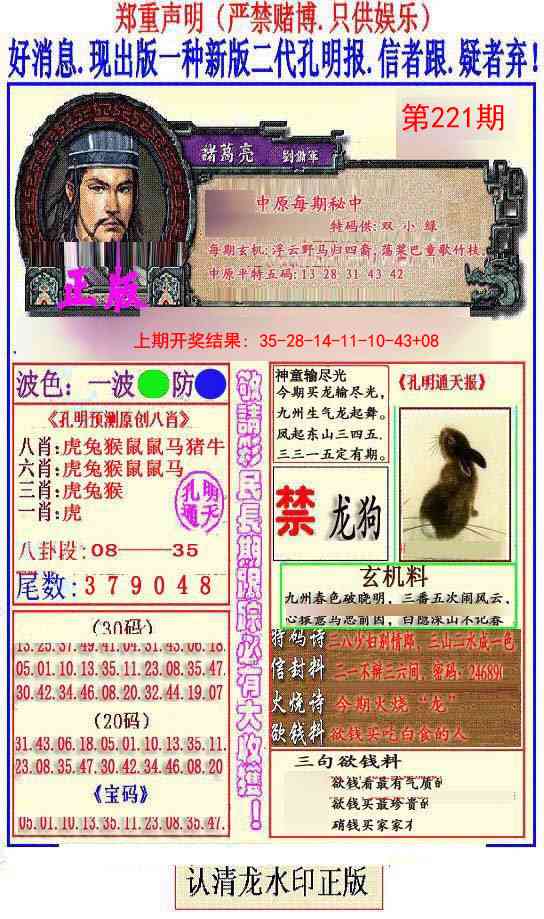 郑重声明（严禁赌博.只供娱乐）
好消息.现出版一种新版二代孔明报.信者跟.疑者弃!
第221期
諸葛亮 劉備軍
中原每期秘中
特码供:双 小 緑
每期玄机:浮云野马归四裔,荡桨巴童歌竹枝.
中原平特五码:13 28 31 43 42
正版
上期开奖结果：35-28-14-11-10-43+08
波色：一波 防
《孔明预测原创八肖》
八肖:虎兔猴鼠鼠马猪牛
六肖:虎兔猴鼠鼠马
三肖:虎兔猴
一肖:虎
孔明通天
八卦段:08——35
尾数:379048
(30码)
13.25.37.49.41.04.31.43.06.18.
05.01.10.13.35.11.23.08.35.47
30.42.34.46.08.20.32.44.19.07
(20码)
31.43.06.18.05.01.10.13.35.11.
23.08.35.47.30.42.34.46.08.20
《宝码》
05.01.10.13.35.11.23.08.35.47.
敬請彩民長期跟踪必有大收獲！
神童输尽光
今期买龙输尽光，
九州生气龙起舞。
凤起东山三四五.
三三一五定有期。
《孔明通天报》
禁 龙狗
玄机料
九州春色破晓明，三番五次闹风云，
特码诗 二八少妇别情郎，三山二水成一色
信封料 二一不辩三六间，密码：24689(
火烧诗 今期火烧“龙”
欲钱料 欲钱买吃白食的人
三句欲钱料
欲钱看最有气质的
欲钱买最珍贵的
硝钱买家家才
认清龙水印正版